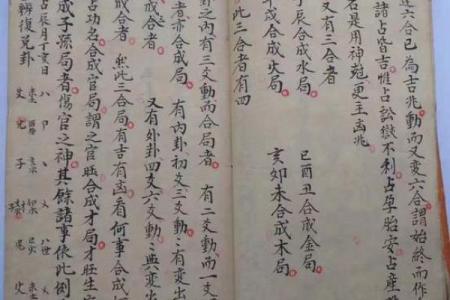 逢六合已為吉兆動而又變六合謂始終而
諸占皆吉惟占訟獄不利占孕胎安占產
名是用神尅更主凶兆
又有三合者
辰合成水局 巳酉丑合成金局
戌合成火局 亥卯未合成木局
此三合者有四
卦之內有三爻動而合局者 有二爻動而一爻
者亦合成局 有內卦初爻三爻動動而有變出
成合者 又有外卦四爻六爻動動與變出
成合者 然此三合局有吉有凶看何事合成
占功名合成官局謂之官旺合成才局才旺生官
成子孫局者傷官之神其餘諸事依此例
占辰月丁亥日
復兌卦